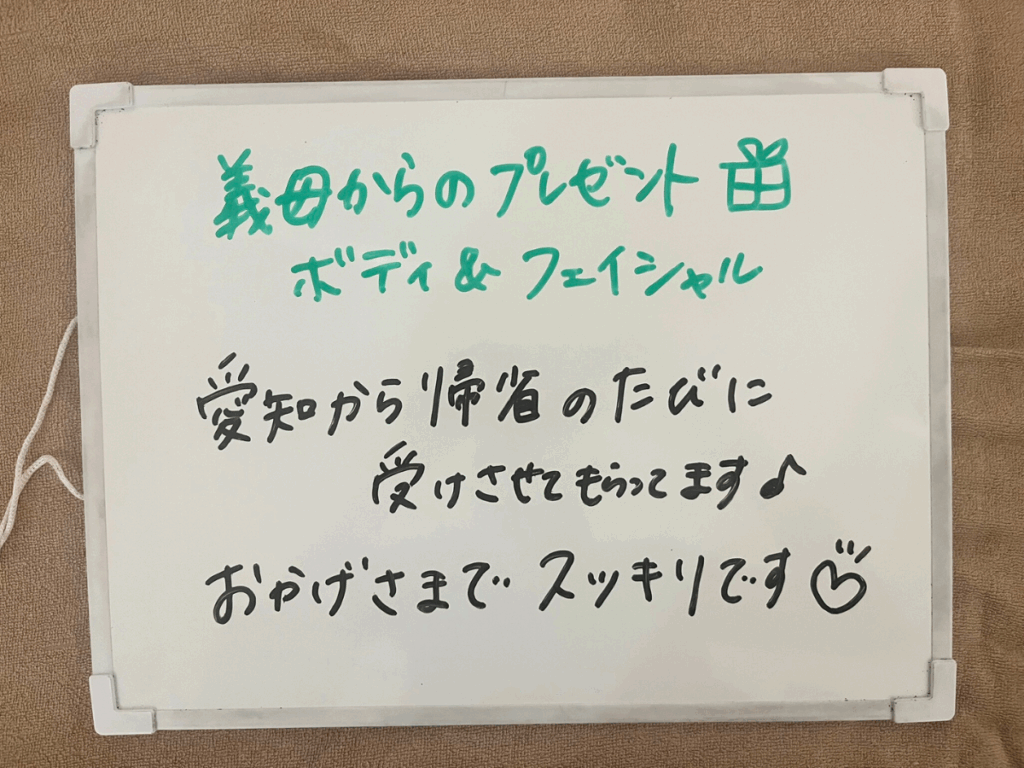 義母からのプレゼント
ボディ&フェイシャル
愛知から帰省のたびに
受けさせてもらってます♪
おかげさまでスッキリです♡